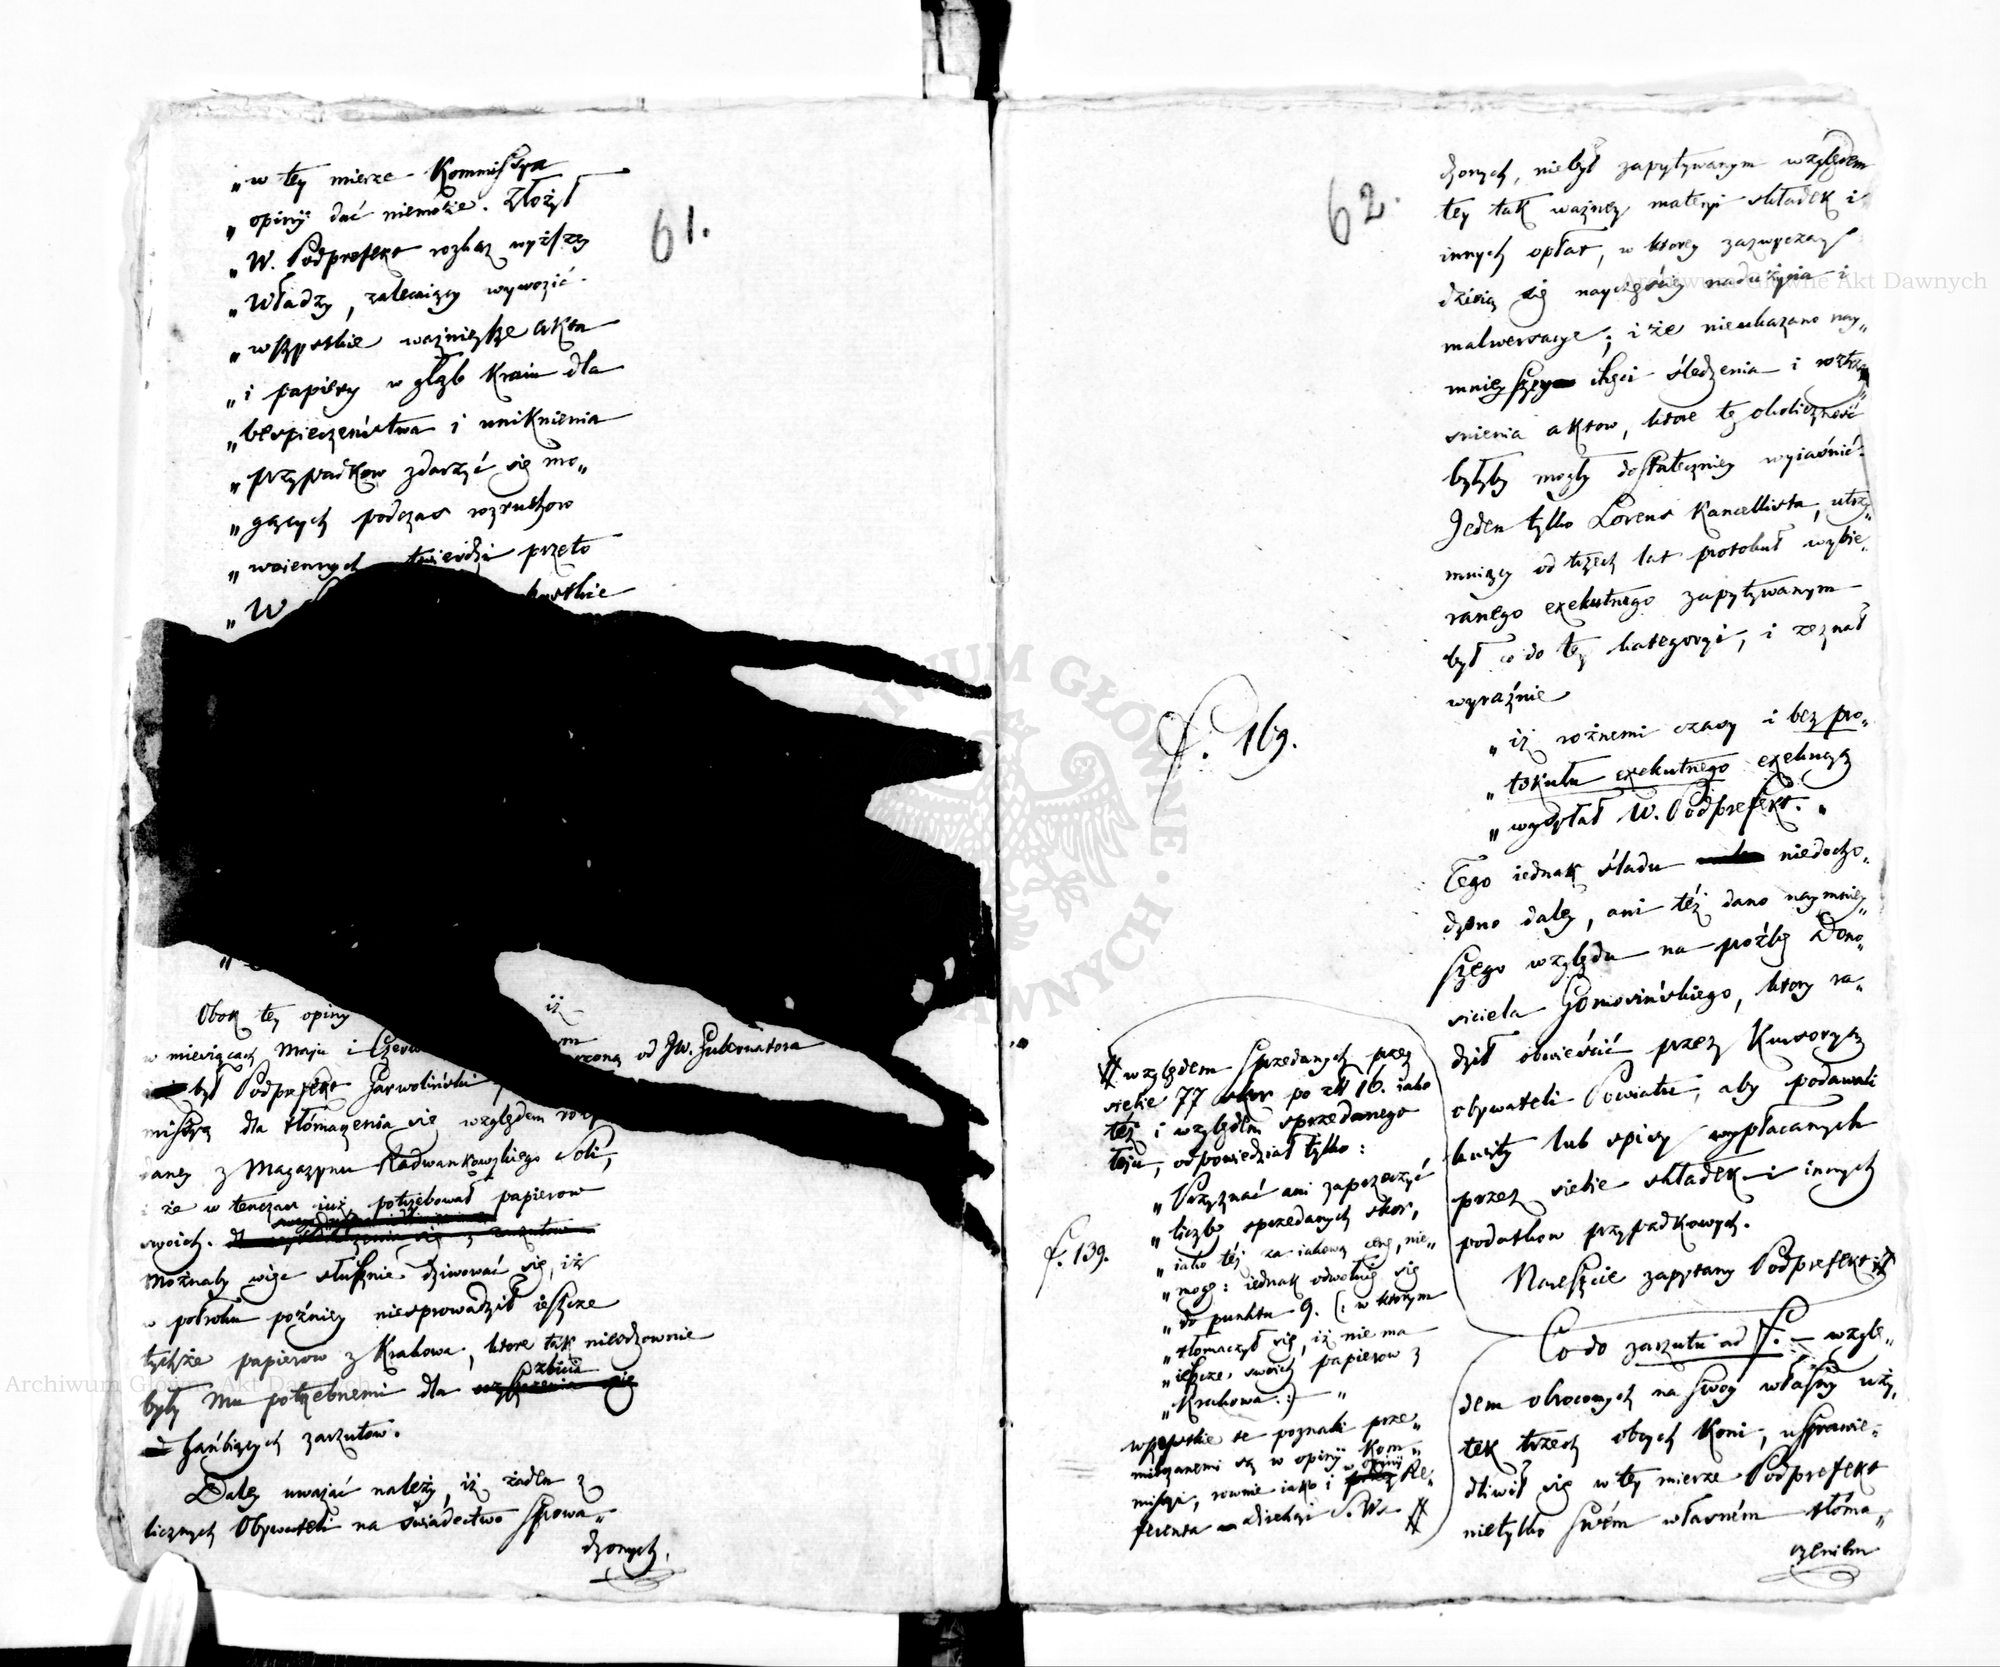 61.
„w tey mierze Kommissya
„opinij dać niemoże. Złożył
„W. Podprefekt rozkaz wyższey
„Władzy, zalecaiący wywozić
„wszystkie ważnieysze akta
„i papiery w głąb Kraiu dla
„bespieczeństwa i uniknienia
„przypadkow zdarzyć się mo„
„gących podczas rozruchow
„woiennych twierdzi przeto
„W
Obok tey opiny iż
w miesiącach Maju i od JW. Gubernatora
był Podprefekt Garwoliński
dla tłómaczenia się względem
daney z Magazynu Radwankowskiego Soli,
że w tenczas iuż potrzebował papierow
swoich.
Możnaby więc słusznie dziwować się, iż
w połroku poźniey niesprowadził ieszcze
tychże papierow z Krakowa, ktore tak nieodzownie
były Mu potrzebnemi dla zbicia
hańbiących zarzutow.
Daley uważać należy, iż żaden z
licznych Obywateli na świadectwo sprowa„
dzonych,
62.
dzonych, niebył zapytywanym względem
tey tak ważney materyi składek i
innych opłat, w ktorey zazwyczay
dzieią się nayczęściey nadużycia i
malwersacye; i że nieukazano nay„
mnieyszey chęci śledzenia i roztrzą„
snienia aktow, ktore tę okoliczność
byłyby mogły dostateczniey wyiaśnić.
Jeden tylko Lorens Kancellista, utrzy„
muiący od trzech lat protokuł wybie„
ranego exekutnego zapytywanym
był co do tey kategoryi, i zeznał
wyraźnie
f. 169.
„iż rożnemi czasy i bez pro„
„tokułu exekutnego exekucyą
„wysyłał W. Podprefekt.„
Tego iednak śladu niedocho„
dzono daley, ani téż dano naymniey„
szego względu na proźbę Dono„
siciela Gomosińskiego, ktory ra„
dził obwieścić przez Kursoryą
obywateli Powiatu, aby podawali
kwity lub spisy wypłacanych
przez siebie składek i innych
podatkow przypadkowych.
Nareszcie zapytany Podprefekt #
# względem sprzedanych przez
siebie 77 skor po zł 16. iako
też i względem sprzedanego
łoju, odpowiedział tylko:
„Przyznać ani zaprzeczyć
„liczby sprzedanych skor,
f. 139.
„iako téż za iakową cenę, nie„
„mogę: iednak odwołuię się
„do punktu 9. (: w ktorym
„tłomaczył się, iż nie ma
„ieszcze swoich papierow z
„Krakowa :) „
wszystkie te poznaki prze„
milczanemi są w opiny Kom„
missyi, rownie iako i w opiny Re„
ferenta Direkcyi S. W. #
Co do zarzutu ad f. – wzglę„
dem obroconych na swoy własny uży„
tek trzech obcych Koni, usprawie„
dliwił się w tey mierze Podprefekt
nietylko swém własném tłóma„
czeniem
Archiwum Główne Akt Dawnych
Archiwum Główne Akt Dawnych